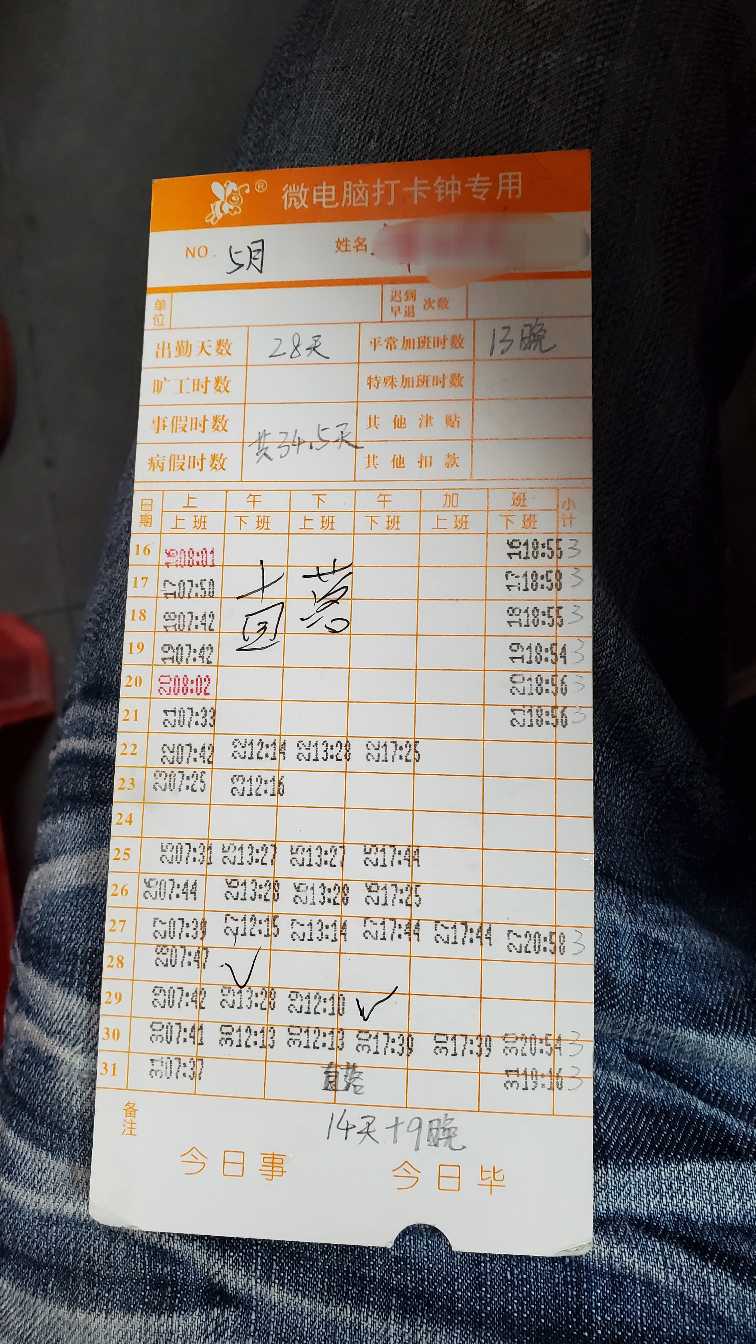 ® 微电脑打卡钟专用
NO. 5月 姓名
单位 迟到早退 次数
出勤天数 28天 平常加班时数 13晚
旷工时数 特殊加班时数
事假时数 其他津贴
共34.5天
病假时数 其他扣款
日期 上午 下午 加班 小计
上班 下班 上班 下班 上班 下班
16 16 08:01 16 18:55 3
17 17 07:50 17 18:58 3
18 18 07:42 18 18:55 3
19 19 07:42 19 18:54 3
20 20 08:02 20 18:56 3
21 21 07:33 21 18:56 3
22 22 07:42 22 12:14 22 13:28 22 17:25
23 23 07:25 23 12:16
24
25 25 07:31 25 13:27 25 13:27 25 17:44
26 26 07:44 26 13:28 26 13:28 26 17:25
27 27 07:39 27 12:15 27 13:14 27 17:44 27 17:44 27 20:58 3
28 28 07:47
29 29 07:42 29 13:28 29 12:10
30 30 07:41 30 12:13 30 12:13 30 17:39 30 17:39 30 20:54 3
31 31 07:37 直落 31 19:16 3
备注 14天+9晚
今日事 今日毕